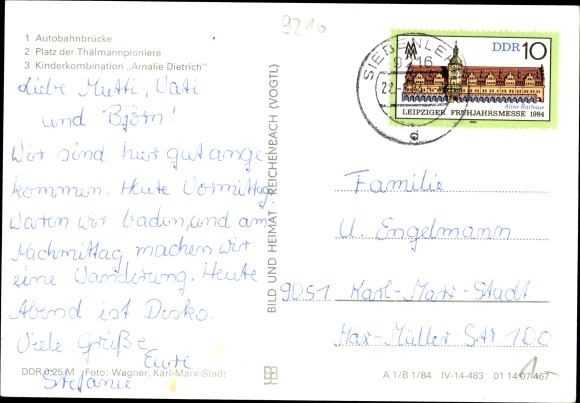 9210
1 Autobahnbrücke
2 Platz der Thälmannpioniere
3 Kinderkombination „Amalie Dietrich"
Liebe Mutti, Vati
und Björn!
Wir sind hier gut ange
kommen. Heute Vormittag
waren wir baden, und am
Nachmittag machen wir
eine Wanderung. Heute
Abend ist Disko.
Viele Grüße
Eure
Stefanie
DDR 0,25 M Foto: Wagner, Karl-Marx-Stadt
BILD UND HEIMAT REICHENBACH (VOGTL)
SIEBENLEHN
9216
d
DDR 10
Altes Rathaus
LEIPZIGER FRÜHJAHRSMESSE 1984
Familie
U. Engelmann
9051 Karl-Marx-Stadt
Max-Müller Str. 100
A 1/B 1/84 IV-14-483 01 14 07 467